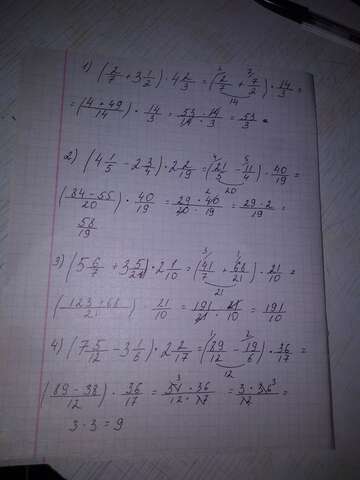 1) (2/7 + 3 1/2) · 4 2/3 = (2/7 + 7/2) · 14/3 =
14
= (4 + 49)/14 · 14/3 = 53 · 14/14 · 3 = 53/3 .
2) (4 1/5 - 2 3/4) · 2 2/19 = (21/5 - 11/4) · 40/19 =
20
(84 - 55)/20 · 40/19 = 29 · 40/20 · 19 = 29 · 2/19 =
58/19
3) (5 6/7 + 3 5/21) · 2 1/10 = (41/7 + 68/21) · 21/10 =
21
(123 + 68)/21 · 21/10 = 191 · 21/21 · 10 = 191/10
4) (7 5/12 - 3 1/6) · 2 2/17 = (89/12 - 19/6) · 36/17 =
12
(89 - 38)/12 · 36/17 = 51 · 36/12 · 17 = 3 · 36/12 =
3 · 3 = 9